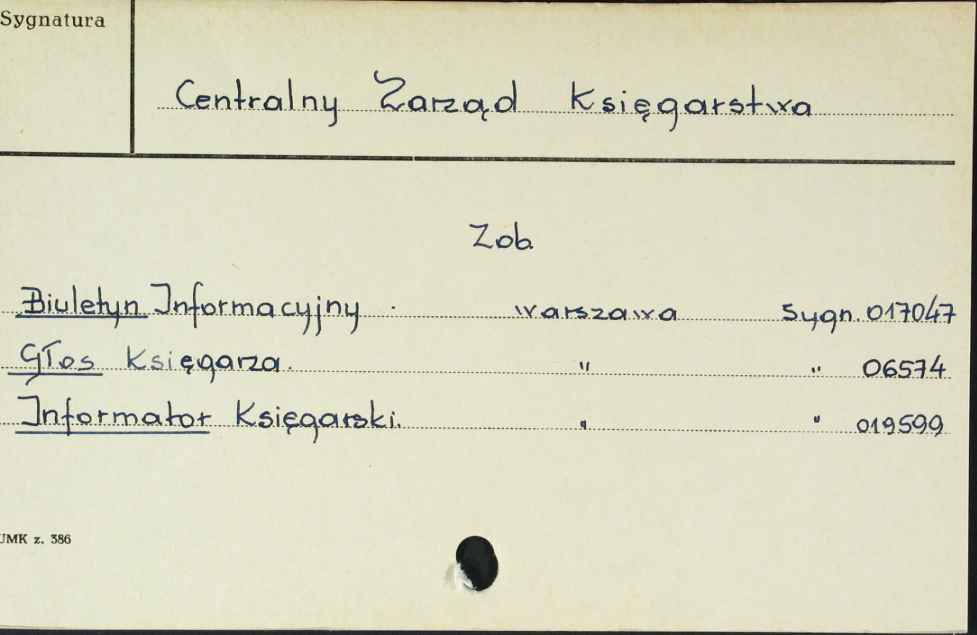 Sygnatura
Centralny Zarząd Księgarstwa
Zob.
Biuletyn Informacyjny. Warszawa Sygn. 017047
Głos Księgarza. " " 06574
Informator Księgarski. " " 019599
UMK z. 386